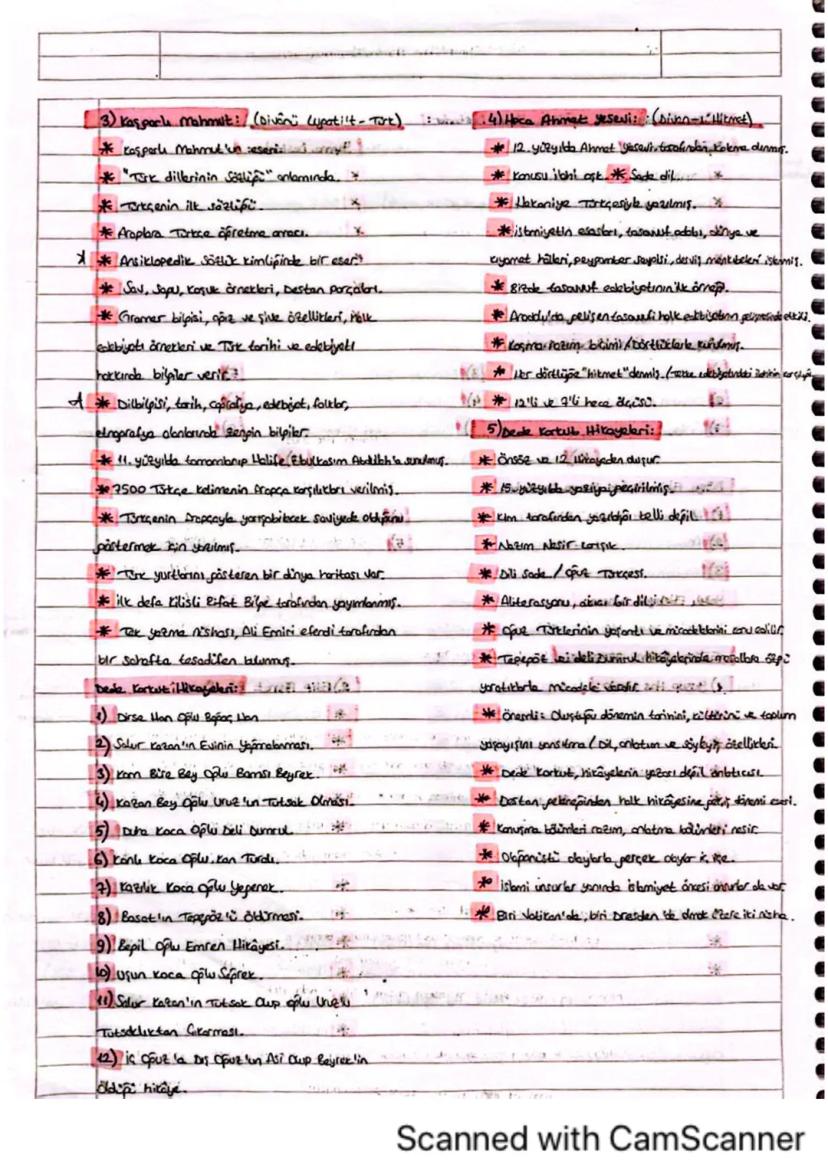 3) Kaşgarlı Mahmut: (Divânü Lügati't-Türk)
* Kaşgarlı Mahmut'un eseri.
* "Türk dillerinin Sözlüğü" anlamında.
* Türkçenin ilk sözlüğü.
* Araplara Türkçe öğretme amacı.
* Ansiklopedik Sözlük kimliğinde bir eser.
* Sav, Sagu, Koşuk örnekleri, Destan parçaları.
* Gramer bilgisi, ağız ve şive özellikleri, Halk
edebiyatı örnekleri ve Türk tarihi ve edebiyatı
hakkında bilgiler verir.
* Dilbilgisi, tarih, coğrafya, edebiyat, folklor,
etnografya alanlarında zengin bilgiler
* 11. yüzyılda tamamlanıp Halife Ebulkasım Abdullah'a sunulmuş.
* 7500 Türkçe kelimenin Arapça karşılıkları verilmiş.
* Türkçenin Arapçayla yarışabilecek seviyede olduğunu
göstermek için yazılmış.
* Türk yurtlarını gösteren bir dünya haritası var.
* ilk defa Kilisli Rifat Bilge tarafından yayımlanmış.
* Tek yazma nüshası, Ali Emiri efendi tarafından
bir sahafta tesadüfen bulunmuş.
Dede Korkut Hikayeleri:
1) Dirse Han Oğlu Boğaç Han
2) Salur Kazan'ın Evinin Yağmalanması.
3) Kam Büre Bey Oğlu Bamsı Beyrek.
4) Kazan Bey Oğlu Uruz'un Tutsak Olması.
5) Duha Koca Oğlu Deli Dumrul
6) Kanlı Koca Oğlu Kan Turalı.
7) Kazılık Koca Oğlu Yegenek.
8) Basat'ın Tepegöz'ü Öldürmesi.
9) Begil Oğlu Emren Hikâyesi.
10) Uşun Koca Oğlu Seğrek.
11) Salur Kazan'ın Tutsak Olup oğlu Uruz'u
Tutsaklıktan Çıkarması.
12) İç Oğuz'a Dış Oğuz'un Asi Olup Beyrek'in
Öldüğü hikâye.
4) Hoca Ahmet Yesevi: (Divan-ı Hikmet)
* 12. yüzyılda Ahmet Yesevi tarafından kaleme alınmış.
* Konusu ilahi aşk. * Sade dil.
* Hakaniye Türkçesiyle yazılmış.
* islamiyetin esasları, tasavvuf adabı, dünya ve
kıyamet hâlleri, peygamber sevgisi, derviş menkıbeleri işlenmiş.
* Bizde tasavvuf edebiyatının ilk örneği.
* Anadolu'da gelişen tasavvufi halk edebiyatının gelişmesinde etkili.
* Koşma nazım biçimi / Dörtlüklerle kurulmuş.
* Her dörtlüğe "hikmet" denmiş.
* 12'li ve 7'li hece ölçüsü.
5) Dede Korkut Hikayeleri:
* Önsöz ve 12 Hikayeden oluşur
* 15. yüzyılda yazıya geçirilmiş.
* Kim tarafından yazıldığı belli değil
* Nazım Nesir karışık.
* Dili Sade / Oğuz Türkçesi.
* Aliterasyonu, akıcı bir dil
* Oğuz Türklerinin yaşantı ve mücadelelerini konu edilir.
* Tepegöz ve deli Dumrul hikâyelerinde masallara özgü
yaratıklarla mücadele vardır.
* Önemli: Oluştuğu dönemin tarihini, kültürünü ve toplum
yaşayışını yansıtma / Dil, anlatım ve söyleyiş özellikleri.
* Dede Korkut, hikâyelerin yazarı değil anlatıcısı.
* Destan geleneğinden halk hikâyesine geçiş dönemi eseri.
* Konuşma bölümleri nazım, anlatma bölümleri nesir
* Olağanüstü olaylarla gerçek olaylar iç içe.
* islami unsurlar yanında islamiyet öncesi unsurlar da var
* Biri Vatikan'da, biri Dresden'de olmak üzere iki nüsha.
Scanned with CamScanner